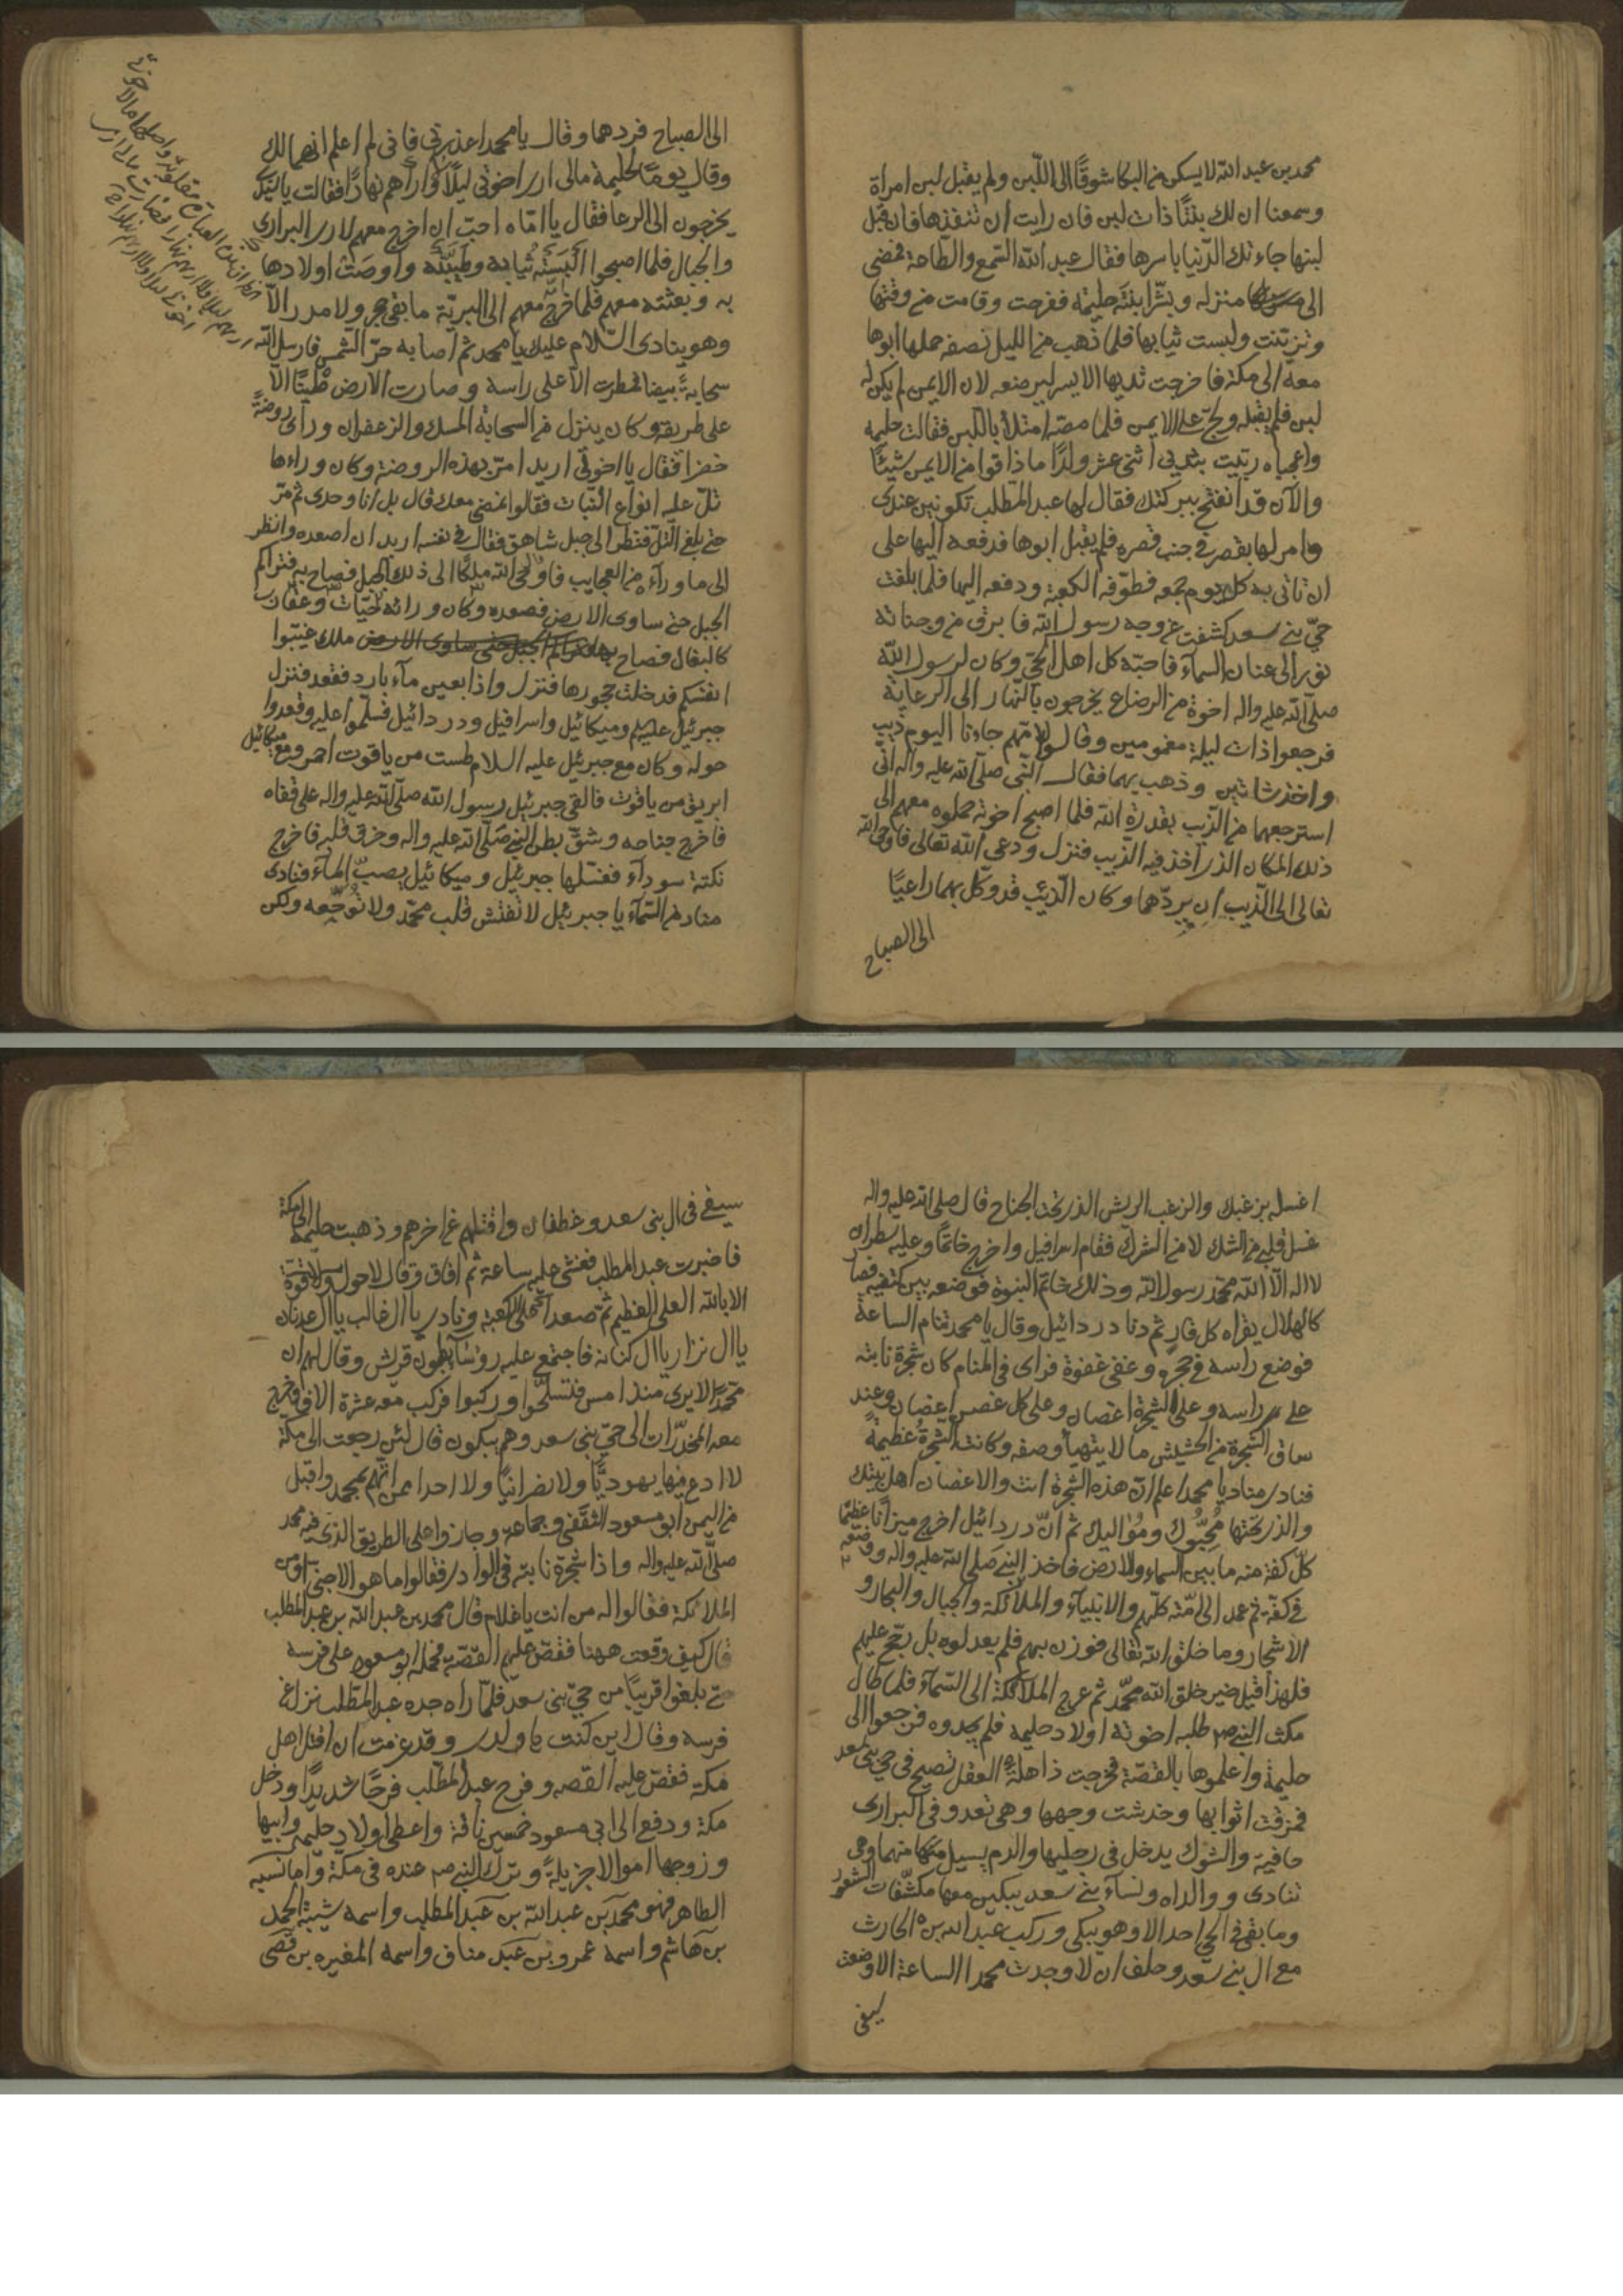 محمد بن عبد الله لا يسكن من البكا شوقًا الى اللّبن ولم يقبل لبن امراة
وسمعنا ان لك بنتًا ذات لبن فان رايت ان تنفذها فان قبل
لبنها جاءتك الدّنيا باسرها فقال عبد الله السّمع والطّاعة فمضى
الى منزله وبشّر ابنته حليمة ففرحت وقامت من وقتها
وتزيّنت ولبست ثيابها فلما ذهب من الليل نصفه حملها ابوها
معه الى مكة فاخرجت ثديها الايسر ليرضعه لان الايمن لم يكن له
لبن فلم يقبله ولجّ على الايمن فلما مصّه امتلأ باللّبن فقالت حليمه
واعجباه ربّيت بثديي اثنى عشر ولدًا ما ذاقوا من الايمن شيئًا
والآن قد انفتح ببركتك فقال لها عبد المطّلب تكونين عندى
وامر لها بقصر فى جنب قصره فلم يقبل ابوها فدفعه اليها على
ان تاتى به كل يوم جمعه فطوّفه الكعبة ودفعه اليها فلما بلغت
حىّ بنى سعد كشفت عن وجه رسول الله فابرق من وجناته
نور الى عنان السمآء فاحبّه كل اهل الحىّ وكان لرسول الله
صلّى الله عليه واله اخوة من الرضاع يخرجون بالنّهار الى الرعاية
فرجعوا ذات ليلة مغمومين وقالوا لامّهم جاءنا اليوم ذيب
واخذ شاتين وذهب بهما فقال النّبى صلّى الله عليه واله انى
استرجعهما من الذّيب بقدرة الله فلما اصبح اخوته حملوه معهم الى
ذلك المكان الذى اخذ فيه الذيب فنزل ودعى الله تعالى فاوحى الله
تعالى الى الذّيب ان يردّهما وكان الذّيب قد وكّل بهما راعيًا
الى الصباح
الى الصباح فردهما وقال يا محمد اعذرنى فانى لم اعلم انهما لك
وقال يومًا لحليمة مالى ارى اخوتى ليلًا ولا اراهم نهارًا فقالت يا بنىّ
يخرجون الى الرعا فقال يا امّاه احبّ ان اخرج معهم لارى البرارى
والجبال فلما اصبحوا البسته ثيابه وطيّبته واوصت اولادها
به وبعثته معهم فلما خرج معهم الى البريّة ما بقى حجر ولا مدر الّا
وهو ينادى السّلام عليك يا محمد ثم اصابه حرّ الشّمس فارسل الله
سحابةً بيضا فمطرت الّا على راسه وصارت الارض طينًا الّا
على طريقه وكان ينزل من السحابة المسك والزعفران وراى روضةً
خضرا فقال يا اخوتى اريد امرّ بهذه الروضة وكان وراءها
تلّ عليه انواع النّبات فقالوا نمضى معك قال بل انا وحدى ثم مرّ
حتى بلغ التّلّ فنظر الى جبل شاهق فقال فى نفسه اريد ان اصعده وانظر
الى ماوراءه من العجايب فاوحى الله ملكًا الى ذلك الجبل فصاح به فتراكم
الجبل حتى ساوى الارض فصعده وكان ورائه حيّات وعقارب
كالبغال فصاح بها ملك غيّبوا
انفسكم فدخلت جحورها فنزل واذا بعين مآء بارد فقعد فنزل
جبرئيل عليه السلم وميكائيل واسرافيل ودردائيل فسلّموا عليه وقعدوا
حوله وكان مع جبرئيل عليه السلام طست من ياقوت احمر ومع ميكائيل
ابريق من ياقوت فالقى جبرئيل رسول الله صلّى الله عليه واله على قفاه
فاخرج جناحه وشقّ بطن النبى صلّى الله عليه واله وخرق قلبه فاخرج
نكتة سوداء فغسلها جبرئيل وميكائيل يصبّ المآء فنادى
مناد من السّمآء يا جبرئيل لا تفتش قلب محمّد ولا توجّعه ولكن
اغسل بزغبك والزغب الريش الذى تحت الجناح قال صلى الله عليه واله
غسل قلبى من الشك لا من الشرك فقام اسرافيل واخرج خاتمًا وعليه سطران
لا اله الّا الله محمّد رسول الله وذلك خاتم النبوة فوضعه بين كتفيه فصار
كالهلال يقراه كل قارٍ ثم دنا دردائيل وقال يا محمد تنام الساعة
فوضع راسه فى حجره وغفى غفوة فراى فى المنام كان شجرة نابته
على راسه وعلى الشجرة اغصان وعلى كل غصن اغصان وعند
ساق الشّجرة من الحشيش ما لا يتهيأ وصفه وكانت الشجرةُ عظيمةً
فنادى مناد يا محمد اعلم انّ هذه الشّجرة انت والاغصان اهل بيتك
والذى تحتها مُحبُّوك ومُوَاليك ثم انّ دردائيل اخرج ميزانًا عظيمًا
كلّ كفّة منه ما بين السماء والارض فاخذ النبى صلى الله عليه واله ووضعه
فى كفّة ثم عمد الى امّته كلّهم والانبيآء والملائكة والجبال والبحار و
الاشجار وما خلق الله تعالى فوزن بهم فلم يعدلوه بل رجّح عليهم
فلهذا قيل خير خلق الله محمّد ثم عرج الملائكة الى السّمآء فلما طال
مكث النبى ص طلبه اخوته اولاد حليمه فلم يجدوه فرجعوا الى
حليمة واعلموها بالقصّة فخرجت ذاهلة العقل تصيح فى حى بنى سعد
فمزقت اثوابها وخدشت وجهها وهى تعدو فى البرارى
حافية والشوك يدخل فى رجليها والدم يسيل منهما وهى
تنادى ووالداه ونسآء بنى سعد يبكين معها مكشّفات الشعور
وما بقى فى الحى احد الا وهو يبكى وركب عبد الله بن الحارث
مع ال بنى سعد وحلف ان لا وجدت محمدا الساعة الا وضعت
سيفى
سيفى فى ال بنى سعد وغطفان واقتلهم عن اخرهم وذهبت حليمة الى مكة
فاخبرت عبد المطلب فغشى عليه ساعة ثم افاق وقال لا حول ولا قوّة
الا بالله العلى العظيم ثمّ صعد اعلى الكعبة ونادى يا ال غالب يا ال عدنان
يا ال نزار يا ال كنانه فاجتمع عليه رؤساء بطون قريش وقال لهم ان
محمّدًا لا يرى منذ امس فتسلّحوا وركبوا فركب معه عشرة الاف وخرج
معه المخدّرات الى حىّ بنى سعد وهم يبكون قال لئن رجعت الى مكّة
لا ادع فيها يهوديًّا ولا نصرانيًا ولا احدا ممن اتّهم بمحمد واقبل
من اليمن ابو مسعود الثقفى وجماعة وجازوا على الطريق الذى فيه محمد
صلّى الله عليه واله واذا شجرة نابته فى الوادى فقالوا ما هو الا جنى او من
الملائكة فقالوا له من انت يا غلام قال محمد بن عبد الله بن عبد المطلب
قال كيف وقعت ههنا فقصّ عليهم القصّة فحمله ابو مسعود على فرسه
حتى بلغوا قريبًا من حىّ بنى سعد فلمّا راه جده عبد المطّلب نزل عن
فرسه وقال اين كنت يا ولدى وقد عزمت ان اقتل اهل
مكة فقصّ عليه القصه وفرح عبد المطّلب فرحًا شديدًا ودخل
مكة ودفع الى ابى مسعود خمسين ناقة واعطى اولاد حليمة وابيها
وزوجها اموالا جزيلةً وترك النبى ص عنده فى مكة وامّا نسبه
الطاهر فهو محمد بن عبد الله بن عبد المطلب واسمه شيبة الحمد
بن هاشم واسمه عمرو بن عبد مناف واسمه المغيره بن قصى